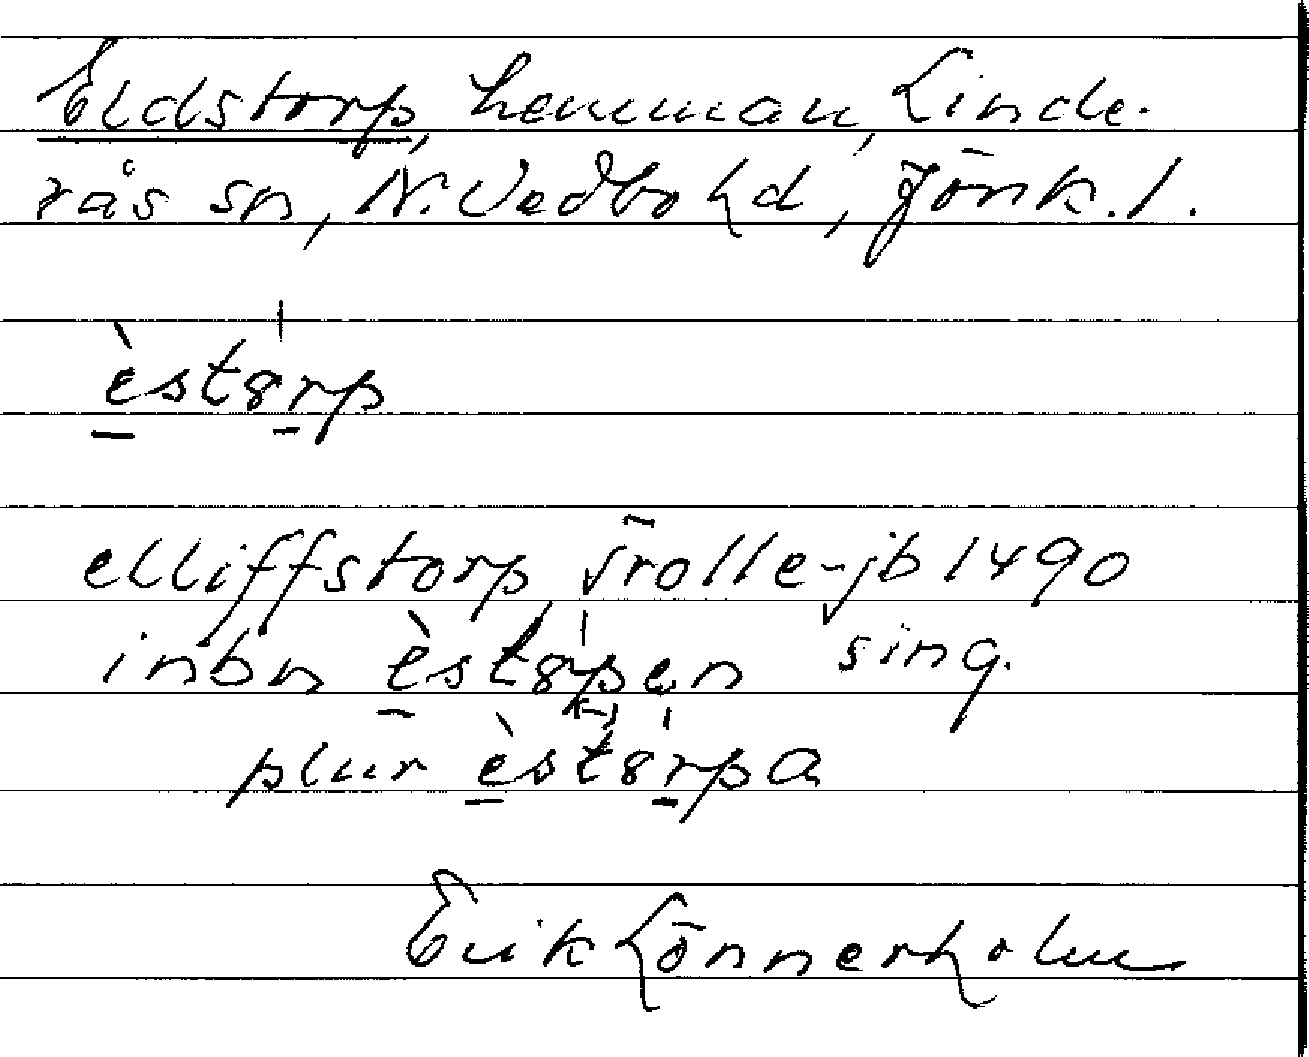 Eldstorp, hemman, Linde-
rås sn, N. Vedbo hd, Jönk. l.
èst8rp
elliffstorp Trolle-jb 1490
inbn èst8rpen sing.
plur èst8rpa
Erik Lönnerholm